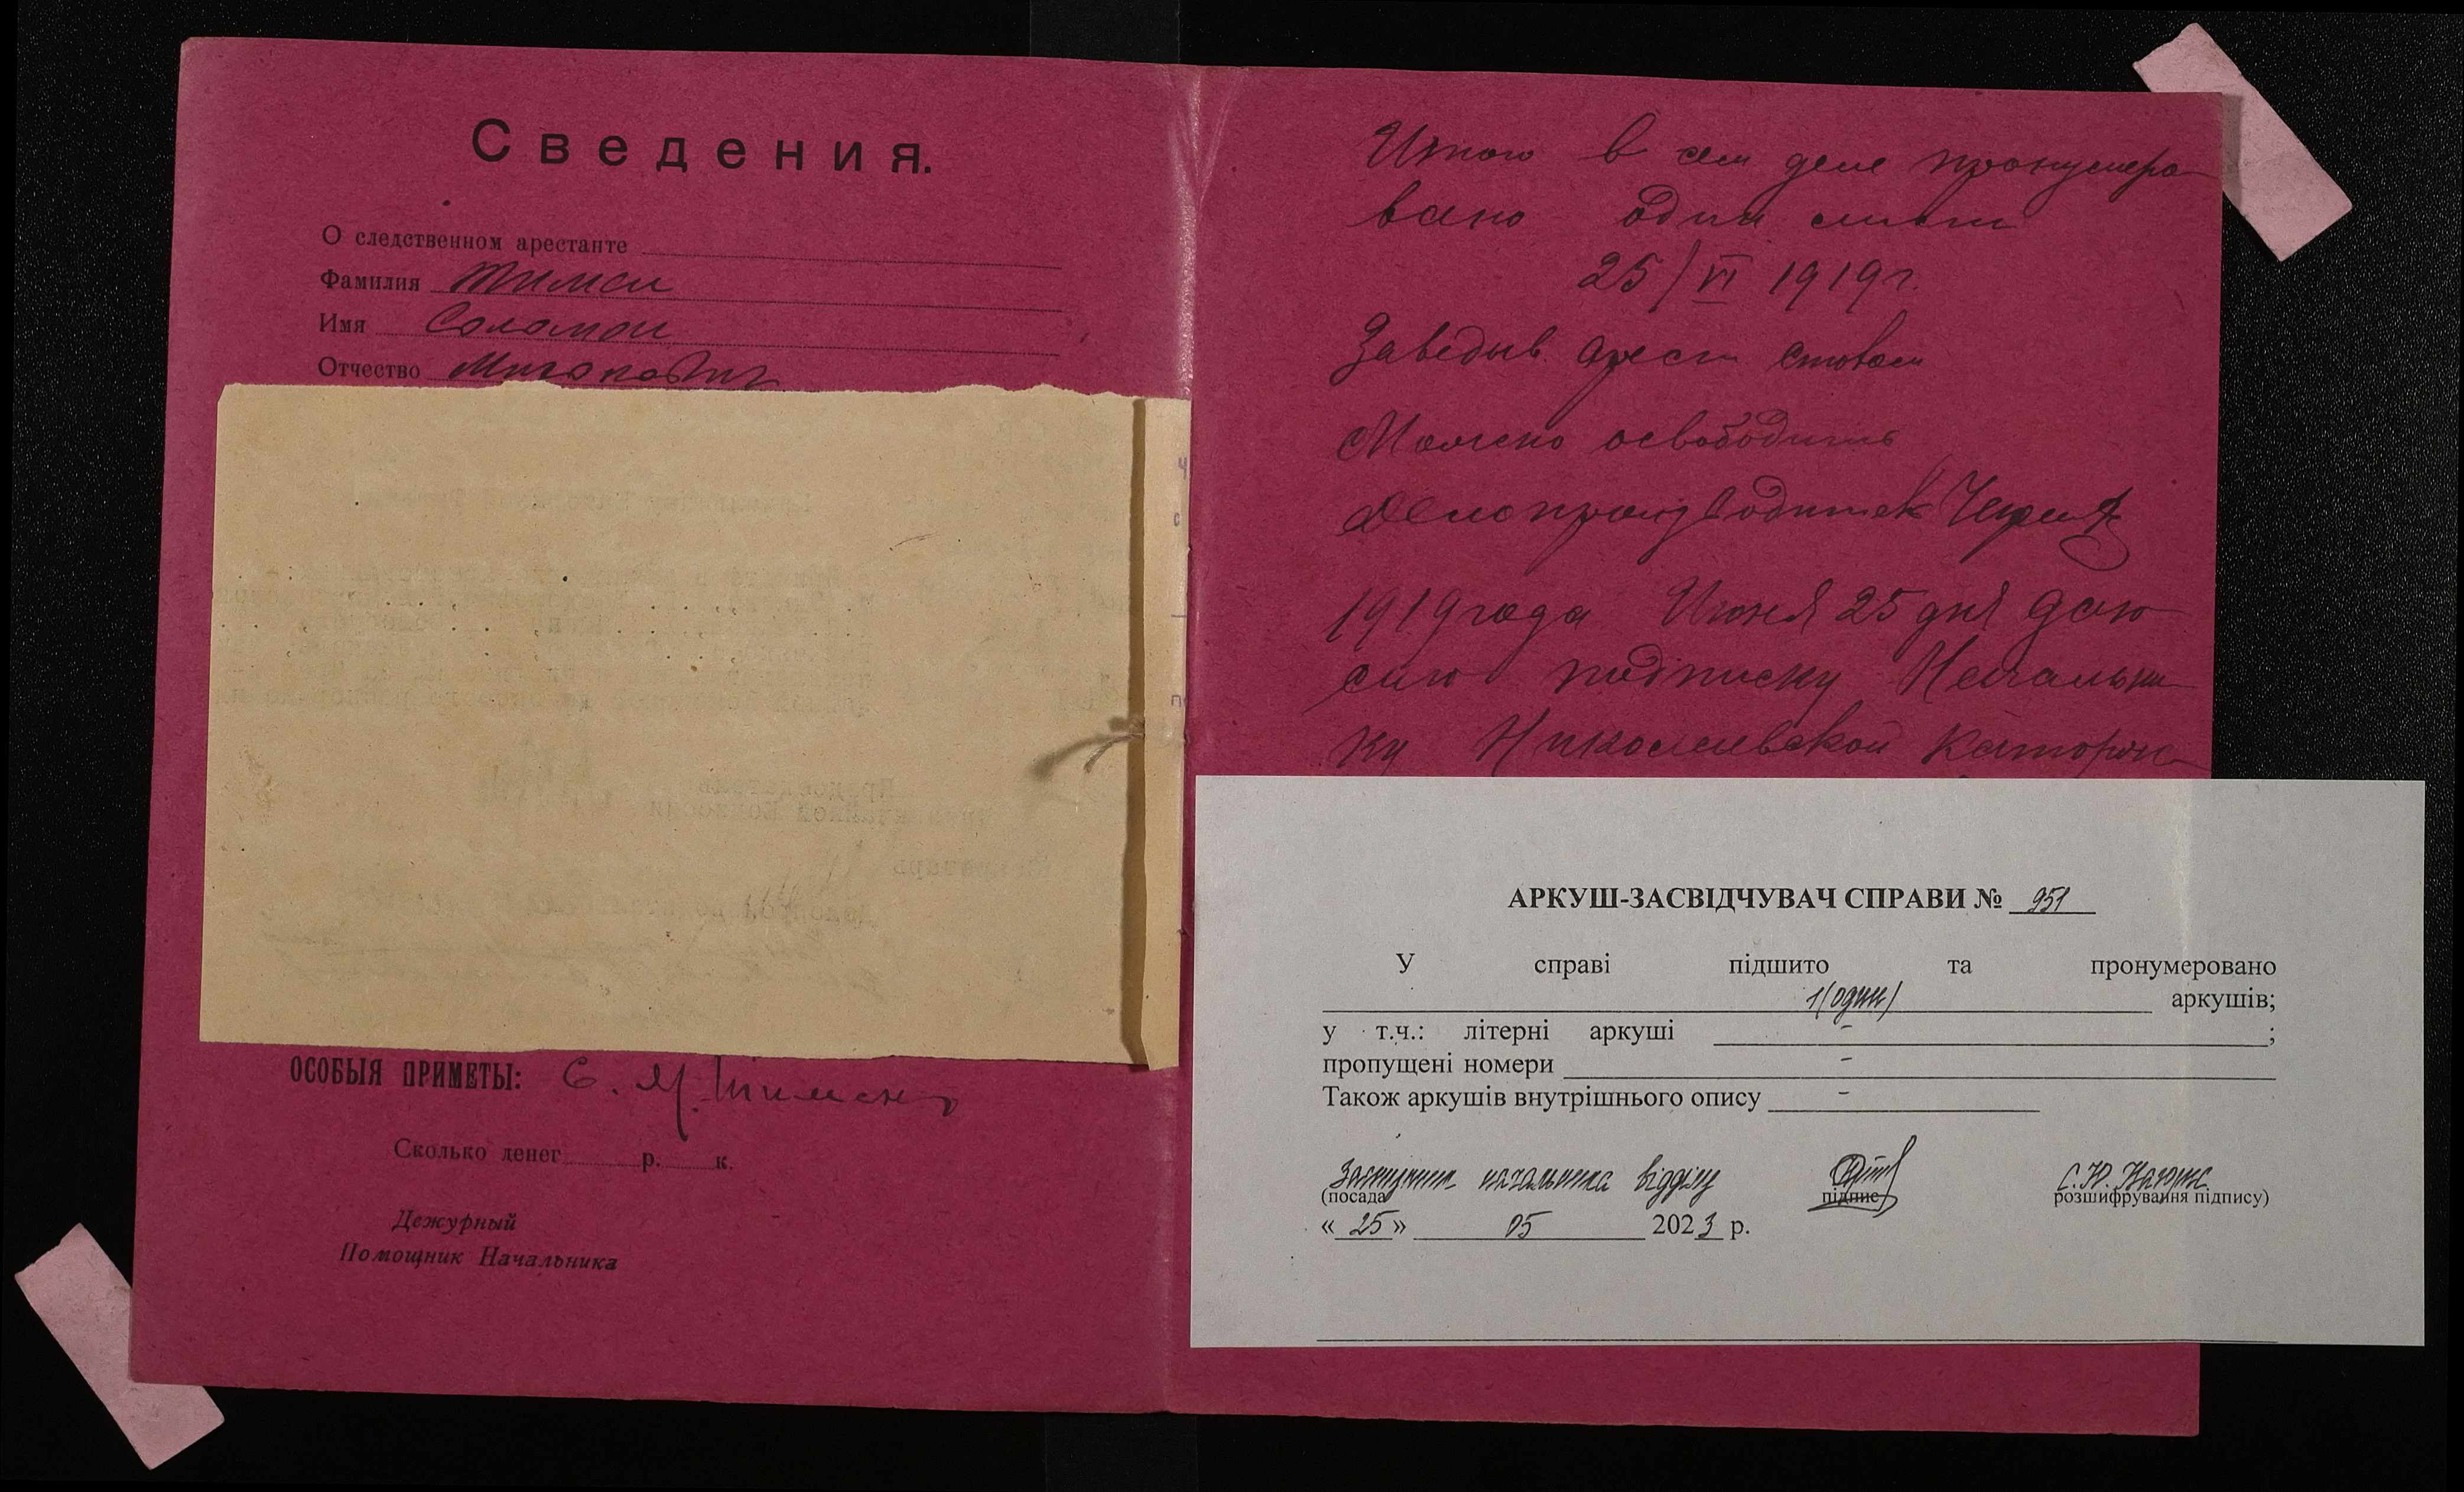 Сведения.
О следственном арестанте
Фамилия Тимен
Имя Соломон
Отчество
ОСОБЫЯ ПРИМЕТЫ: С. М.
Сколько денег р. к.
Дежурный
Помощник Начальника
Итого в сем деле пронумеро
вано один лист
25/VI 1919 г.
Заведыв. арест столом
Можно освободить
Делопроизводитель
1919 года Июня 25 дня даю
сию подписку Начальни
ку Николаевской Каторж
АРКУШ-ЗАСВІДЧУВАЧ СПРАВИ № 951
У справі підшито та пронумеровано
1(один) аркушів;
у т.ч.: літерні аркуші - ;
пропущені номери -
Також аркушів внутрішнього опису -
Заступник начальника відділу
(посада підпис розшифрування підпису)
« 25 » 05 2023 р.